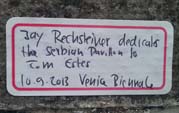 Jay Rechsteiner dedicates
the Serbian Pavilion to
Tom Estes
10.9.2013 Venice Biennale